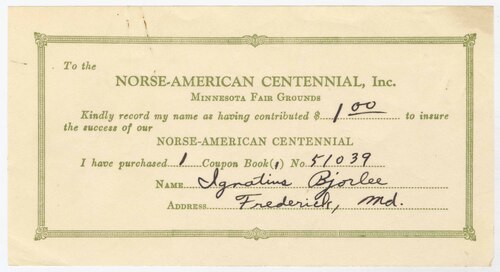 To the
NORSE-AMERICAN CENTENNIAL, Inc.
MINNESOTA FAIR GROUNDS
Kindly record my name as having contributed $ 1.00 to insure
the success of our
NORSE-AMERICAN CENTENNIAL
I have purchased 1 Coupon Book(1) No. 51039
NAME Ignatius Bjorlee
ADDRESS Frederick, Md.